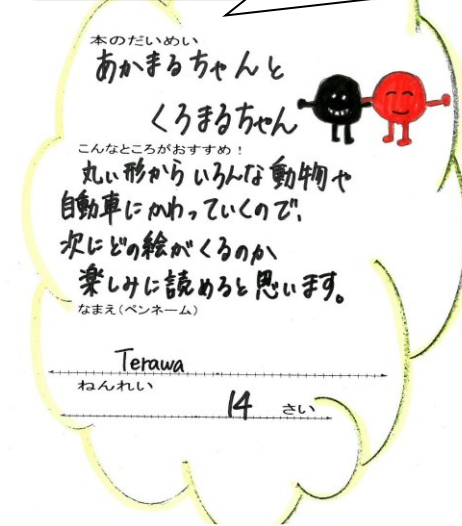 本のだいめい
あかまるちゃんと
くろまるちゃん
こんなところがおすすめ！
丸い形からいろんな動物や
自動車にかわっていくので、
次にどの絵がくるのか
楽しみに読めると思います。
なまえ(ペンネーム)
Terawa
ねんれい
14 さい